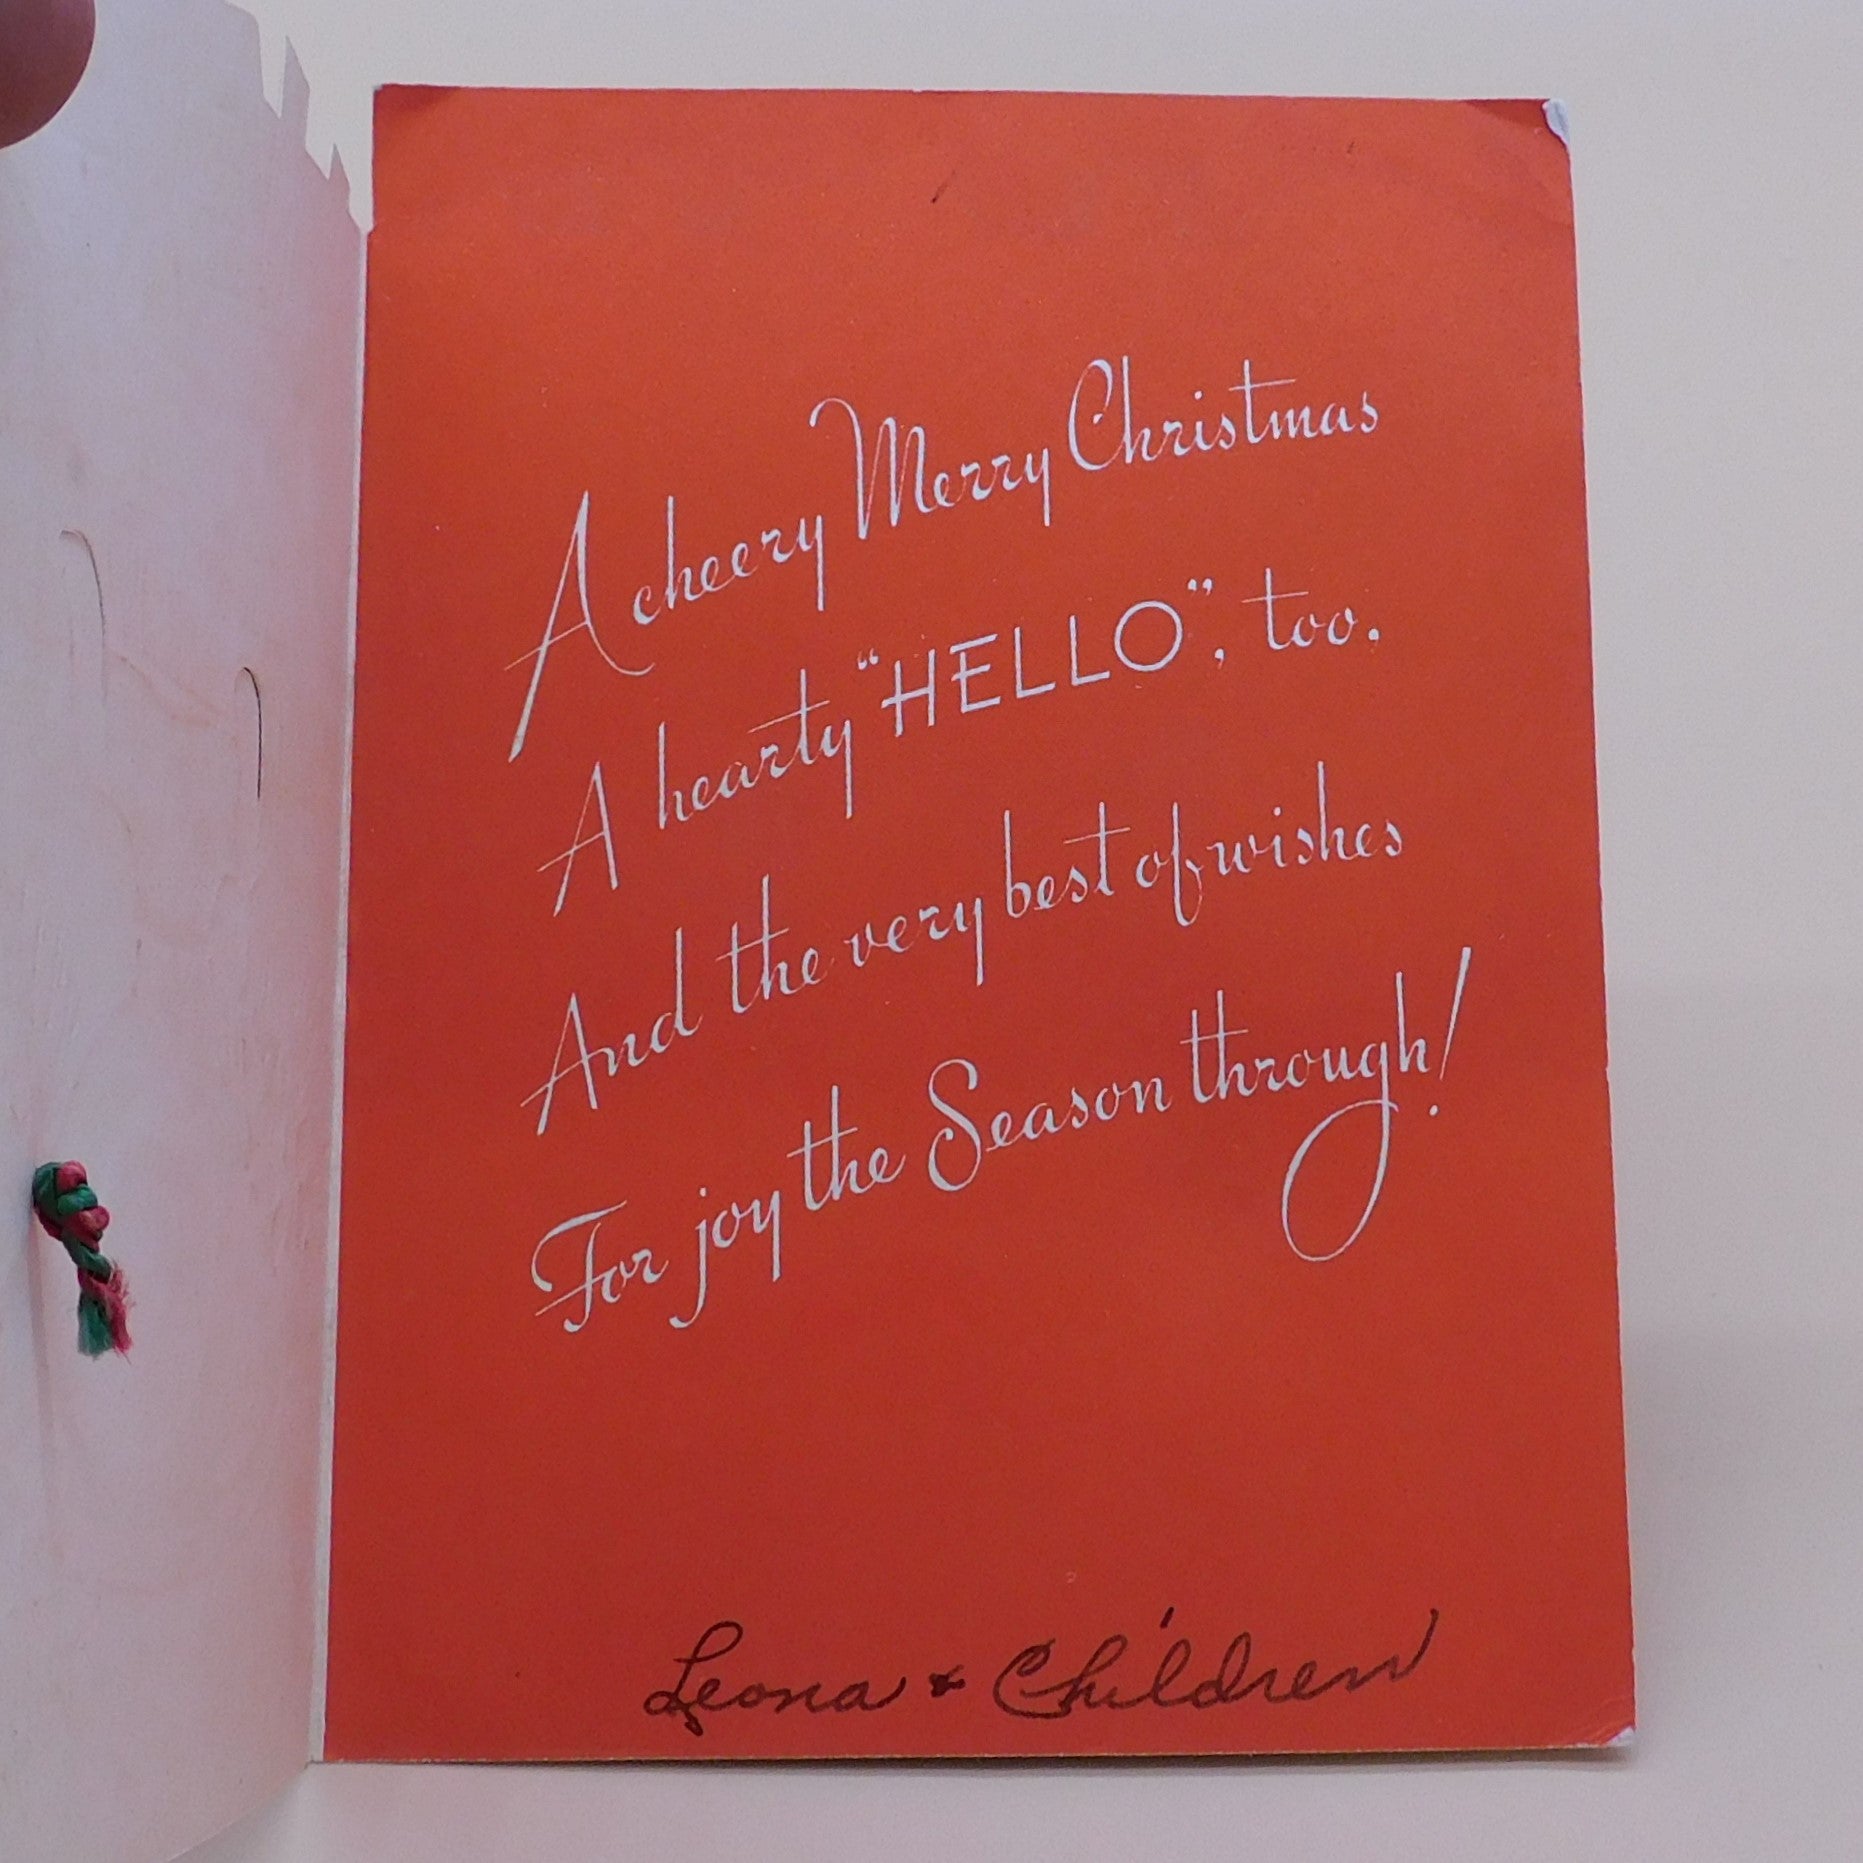 A cheery Merry Christmas
A hearty “HELLO”, too.
And the very best of wishes
For joy the Season through!
Leona & Children